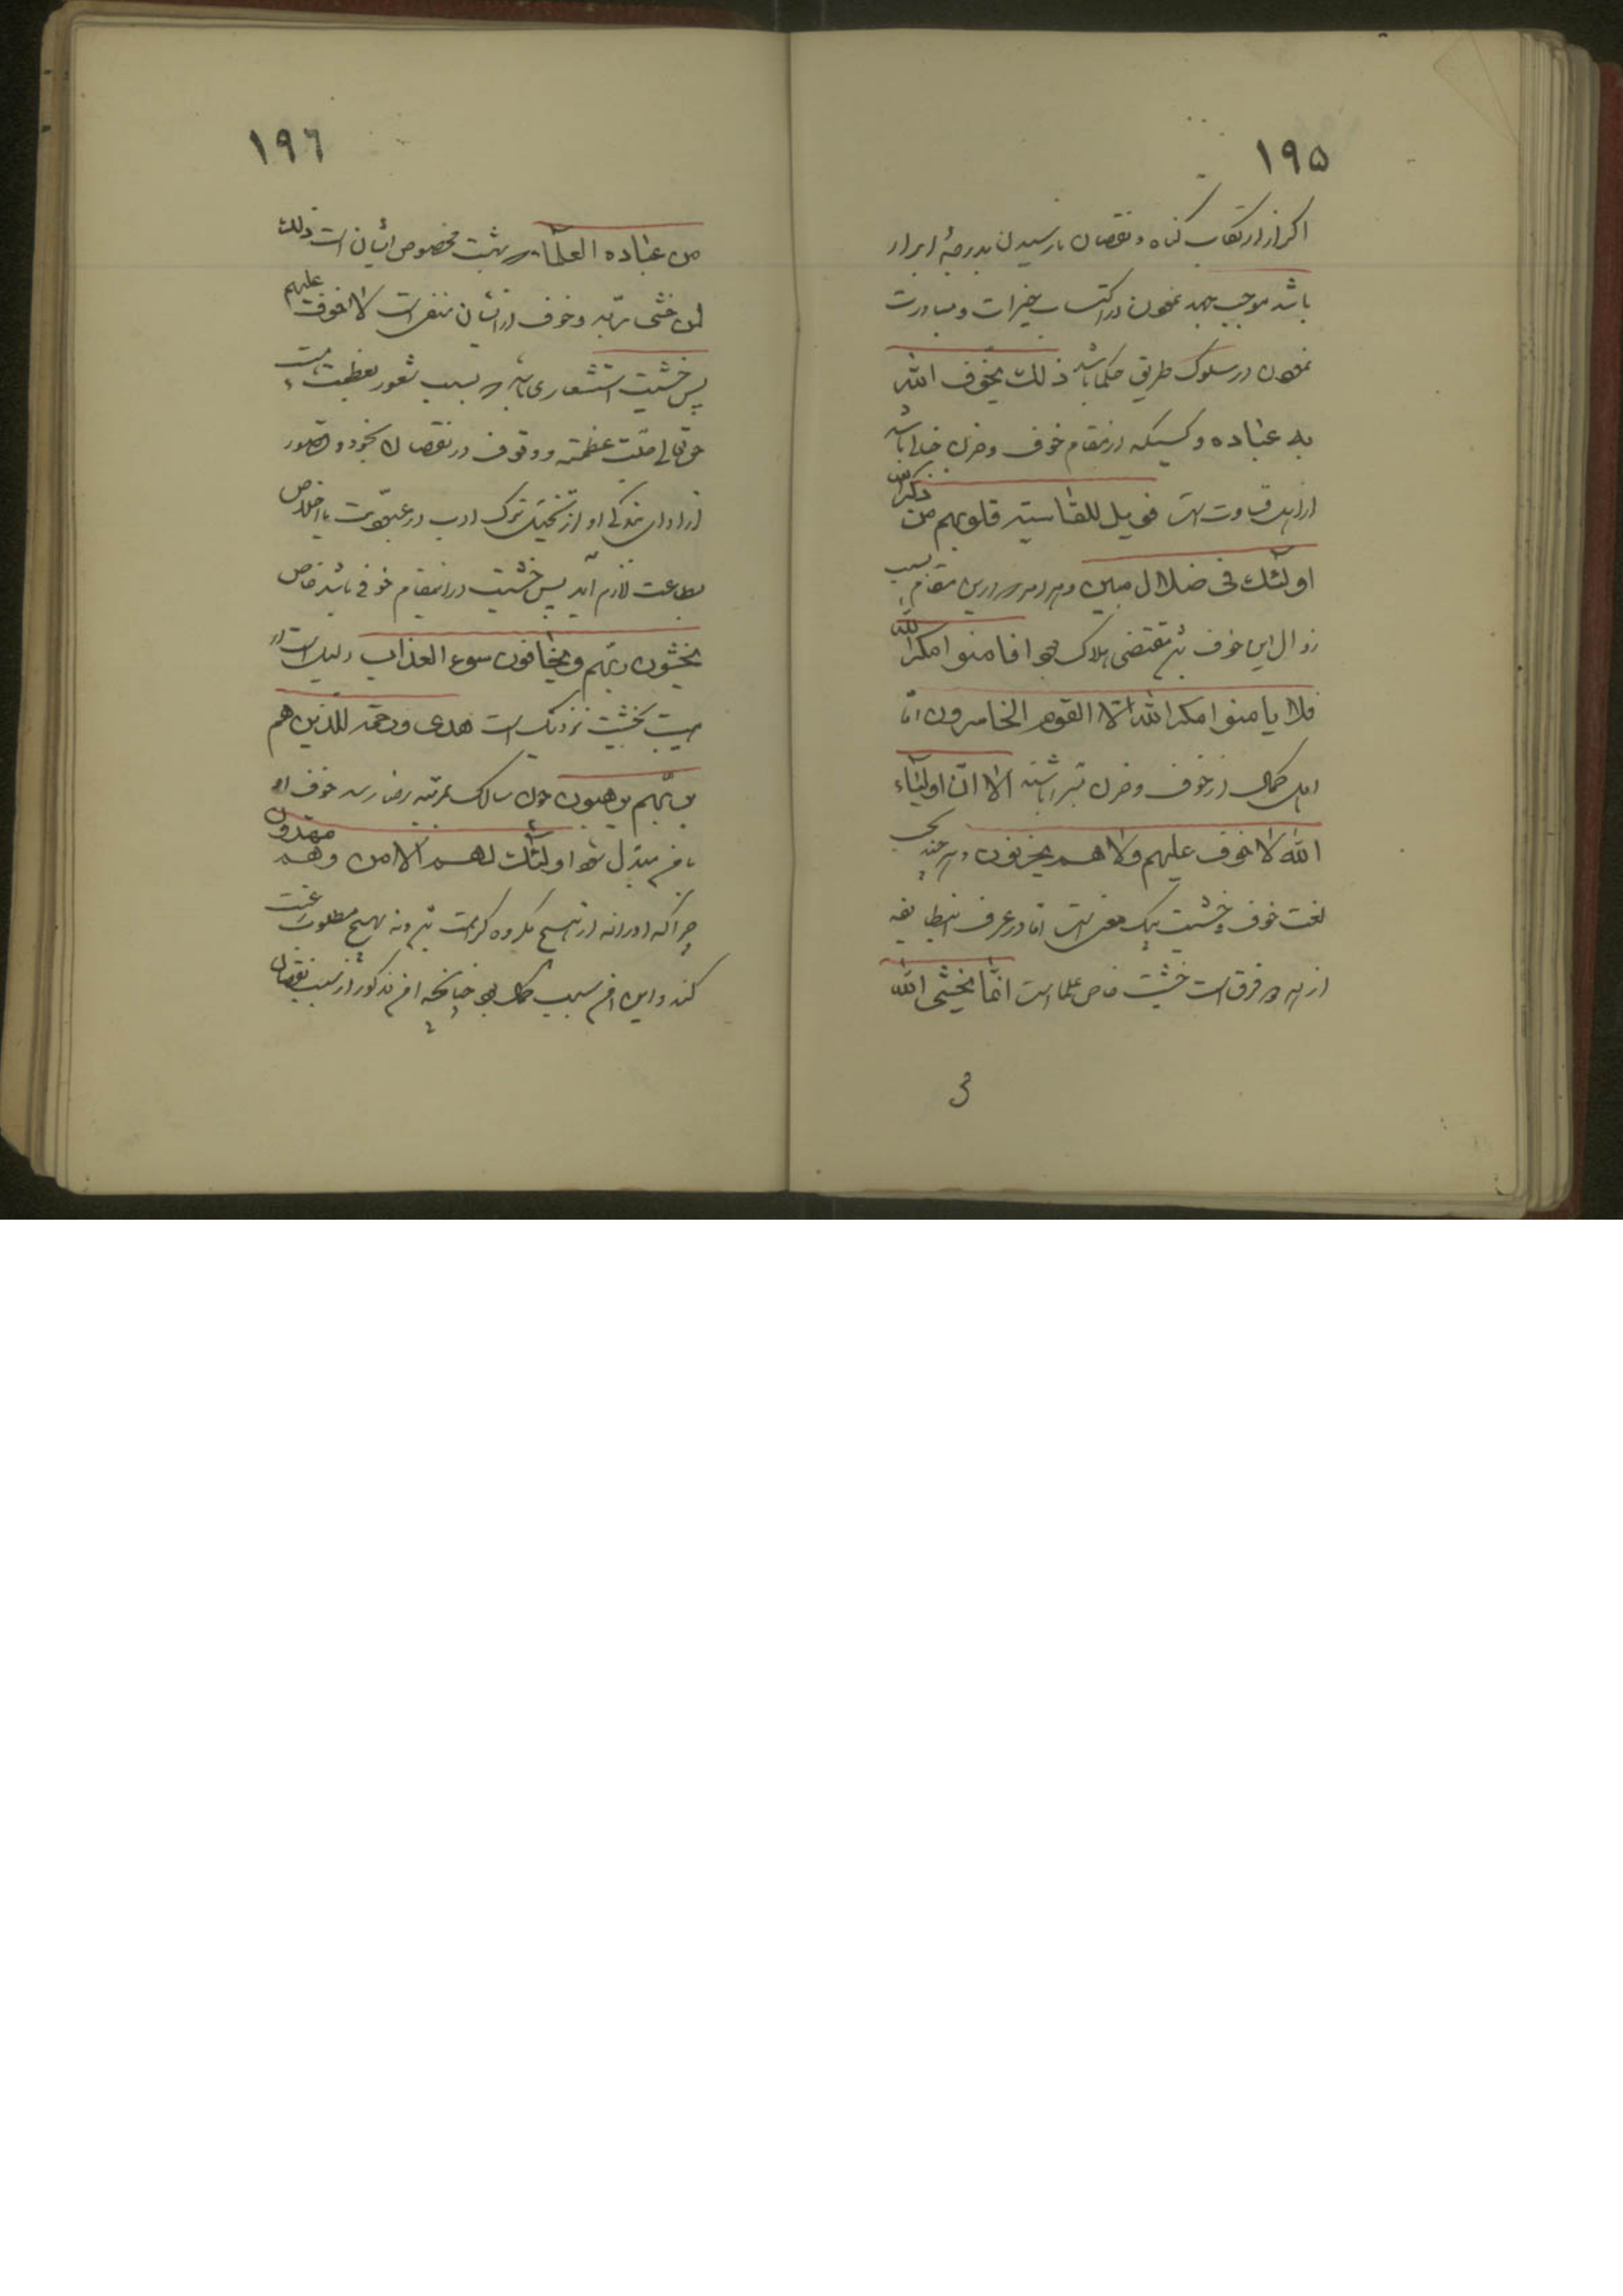 ۱۹۵
اگر از ارتکاب گناه و نقصان نارسیدن بدرجهٔ ابرار
باشد موجب جهد نمودن در اکتساب خیرات و مبادرت
نمودن در سلوک طریق حکما باشد ذلک یخوف الله
به عباده و کسیکه از مقام خوف و حزن خالی باشد
از اهل قساوت است فویل للقاسیة قلوبهم من ذکر الله
اولئک فی ضلال مبین و در این مقام بسبب
زوال این خوف مقتضی هلاک بود افامنوا مکر الله
فلا یامنوا مکر الله الا القوم الخاسرون اما
اهل کمال از خوف و حزن مبرا باشند الا ان اولیاء
الله لا خوف علیهم ولا هم یحزنون و هر چند بحسب
لغت خوف و خشیت بیک معنی است اما در عرف این طایفه
از فرق است خشیت خاص علما است انما یخشی الله
۱۹۶
من عباده العلماء و بهشت مخصوص ایشان است ذلک
لمن خشی ربه و خوف از ایشان منفی است لا خوف علیهم
پس خشیت استشعاری باشد که بسبب شعور بعظمت و هیبت
حق تعالی عظمته و وقوف در نقصان خود و قصور
از ادای بندگی او از تخیل ترک ادب در عبودیت یا اخلال
بطاعت لازم آید پس خشیت در این مقام خوفی باشد خاص
یخشون ربهم و یخافون سوء العذاب دلیل است
هیبت بخشیت نزدیک است هدی و رحمة للذین هم
بربهم یرهبون چون سالک بمرتبه رضا رسد خوف او
بامن مبدل شود اولئک لهم الامن وهم مهتدون
چرا که او را نه از هیچ مکروه کراهت بود و نه بهیچ مطلوب رغبت
کند و این امن بسبب کمال بود چنانچه امن مذکور از سبب نقصان